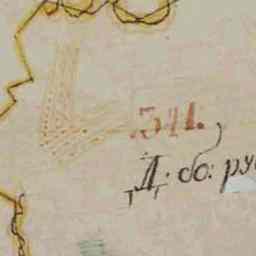 541.
Д: бо: ру